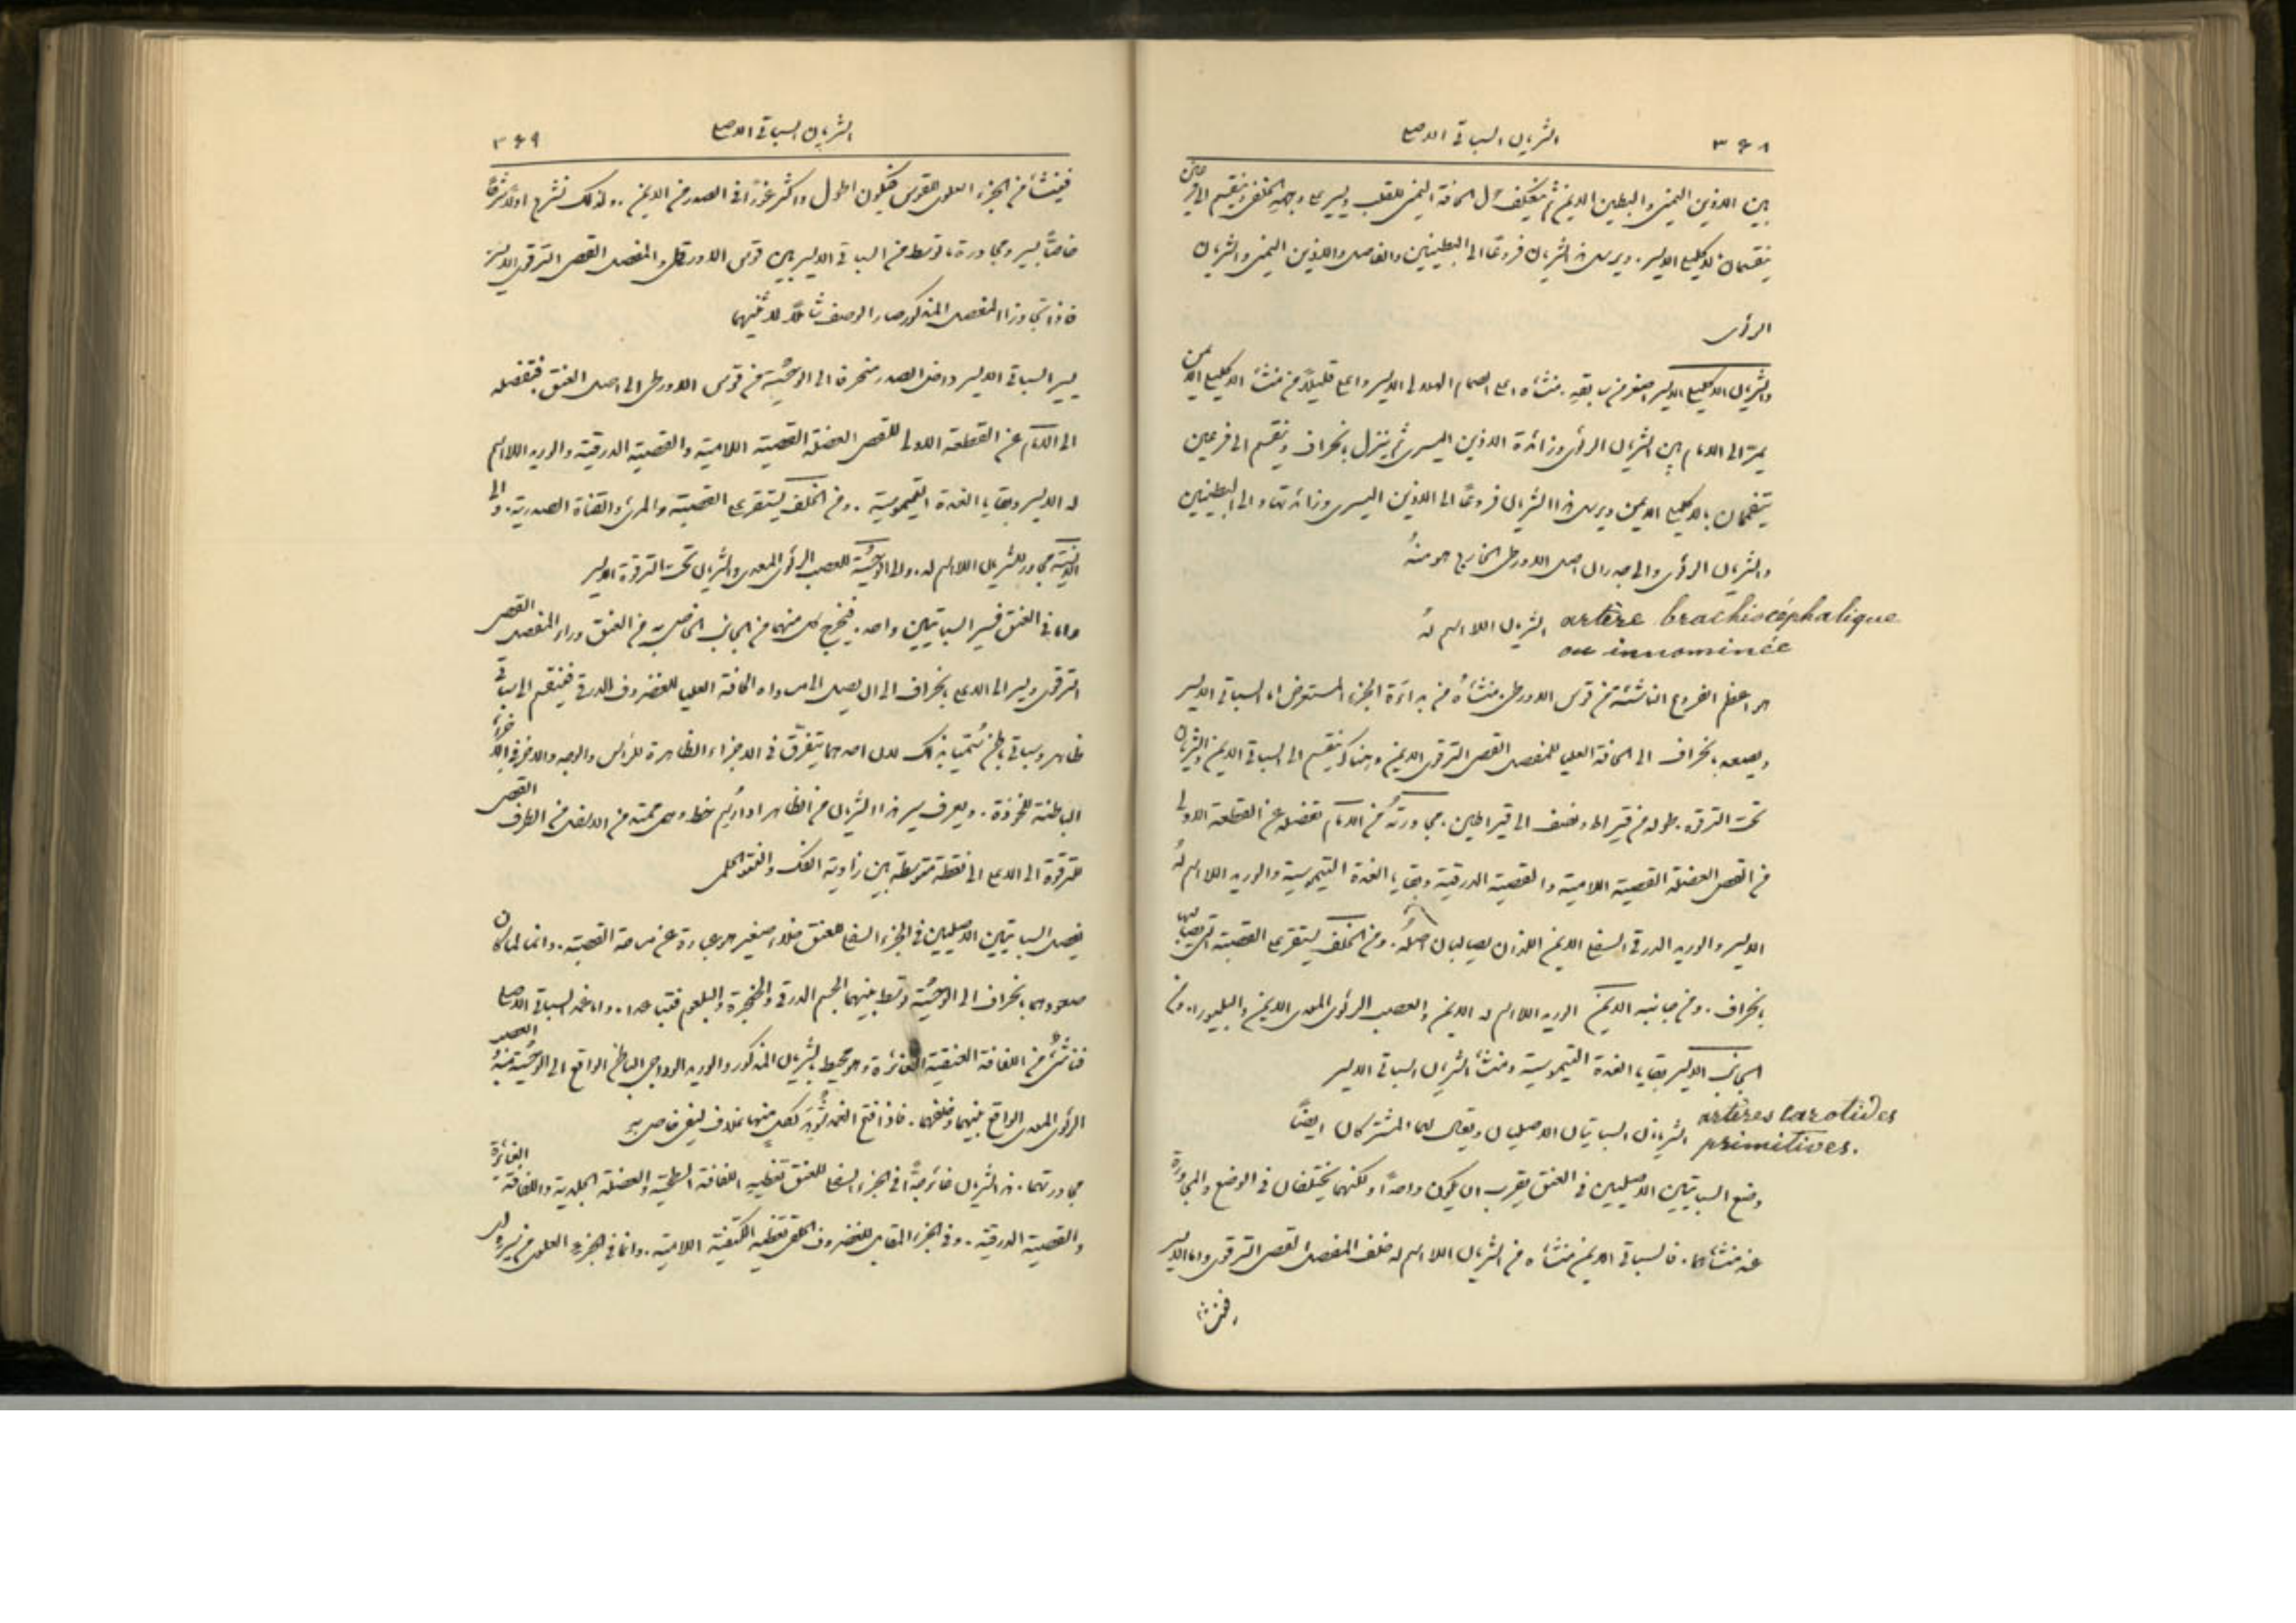 ٣٤٨ الشريان السباتي الاصلي
بين الاذين اليمنى والبطين الايمن ثم ينعكف حول الحافة اليمنى للقلب ويسير على وجهه الخلفي وينقسم الى فرعين
يتفممان بالاكليلي الايسر. ويرسل هذا الشريان فروعًا الى البطينين والفاصل والاذين اليمنى والشريان
الرئوي
والشريان الاكليلي الايسر اصغر من سابقه. منشأه اعلى الصمام الهلالي الايسر واعلى قليلًا من منشأ الاكليلي الايمن
يمرّ الى الامام بين الشريان الرئوي وزائدة الاذين اليسرى ثم ينزل بانحراف وينقسم الى فرعين
يتفممان بالاكليلي الايمن ويرسل هذا الشريان فروعًا الى الاذين اليسرى وزائدتها والى البطينين
والشريان الرئوي والى جدران اصل الاورطى الخارج هو منهُ
artère brachiocéphalique الشريان اللااسم لهُ
ou innominée
هو اعظم الفروع الناشئة من قوس الاورطى. منشأهُ من بداءة الجزء المستعرض امام السباتي الايسر
ويصعد بانحراف الى الحافة العليا للمفصل القصي الترقوي الايمن وهناك ينقسم الى السباتي الايمن والشريان
تحت الترقوة. طوله من قيراط ونصف الى قيراطين. مجاورتهُ من الامام تفصله عن القطعة الاولى
من القص العضلة القصية اللامية والقصية الدرقية وبقايا الغدة التيموسية والوريد اللااسم لهُ
الايسر والوريد الدرقي السفلي الايمن اللذان يصالبان اصلهُ. ومن الخلف يستقر على القصبة التي يصالبها
بانحراف. ومن جانبه الايمن الوريد اللااسم له الايمن والعصب الرئوي المعدي الايمن والبليورا. ومن
الجانب الايسر بقايا الغدة التيموسية ومنشأ الشريان السباتي الايسر
artères carotides الشريانان السباتيان الاصليان ويقال لهما المشتركان ايضًا
primitives.
وضع السباتيين الاصليين في العنق يقرب ان يكون واحدًا ولكنهما يختلفان في الوضع والمجاورة
عند منشأهما. فالسباتي الايمن منشأه من الشريان اللااسم له خلف المفصل القصي الترقوي واما الايسر
فينشأ
الشريان السباتي الاصلي ٣٤٩
فينشأ من الجزء العلوي للقوس فيكون اطول واكثر غورًا في الصدر من الايمن. ولذلك نشرح اولًا شرحًا
خاصًّا بسير ومجاورة ما توسط من السباتي الايسر بين قوس الاورطى والمفصل القصي الترقوي الايسر
فاذا تجاوزا المفصل المذكور صار الوصف شاملًا لاثنيهما
يسير السباتي الايسر داخل الصدر منحرفًا الى الوحشية من قوس الاورطى الى اصل العنق فتفصله
الى الامام عن القطعة الاولى للقص العضلة القصية اللامية والقصية الدرقية والوريد اللااسم
له الايسر وبقايا الغدة التيموسية. ومن الخلف يستقر على القصبة والمرئ والقناة الصدرية. والى
الانسية مجاور للشريان اللااسم له. والى الوحشية للعصب الرئوي المعدي والشريان تحت الترقوة الايسر
واما في العنق فسير السباتيين واحد. فيخرج كل منهما من الجانب الخاص به من العنق وراء المفصل القصي
الترقوي ويسير الى الاعلى بانحراف الى ان يصل الى مساواة الحافة العليا للغضروف الدرقي فينقسم الى سباتي
ظاهر وسباتي باطن سُمّيا بذلك لان احدهما يتفرّق في الاجزاء الظاهرة للرأس والوجه والاخر في الاجزاء
الباطنة للخوذة. ويعرف سير هذا الشريان من الظاهر اذا رُسم خط وهمي ممتد من الانسل من الطرف القصي
للترقوة الى الاعلى الى نقطة متوسطة بين زاوية الفك والنتو الحلمي
يفصل السباتيين الاصليين في الجزء السفلي للعنق خلاء صغير هو عبارة عن مساحة القصبة. وانما لما كان
صعودهما بانحراف الى الوحشية وتوسط بينهما الجسم الدرقي والحنجرة والبلعوم فتباعدا. واما غمد السباتي الاصلي
فناشئٌ من اللفافة العنقية الغائرة وهو محيط بالشريان المذكور والوريد الوداجي الباطن الواقع الى الوحشية منهُ والعصب
الرئوي المعدي الواقع بينهما وخلفهما. فاذا فتح الغمد شُوهد لكلٍ منها غلاف ليفي خاص بهِ
مجاورتهما. هذا الشريان غائر جدًّا في الجزء السفلي للعنق تغطيه اللفافة السطحية والعضلة الجلدية واللفافة الغائرة
والقصية الدرقية. وفي الجزء المقابل للغضروف الحلقي تغطيه الكتفية اللامية. واما في الجزء العلوي من سيره